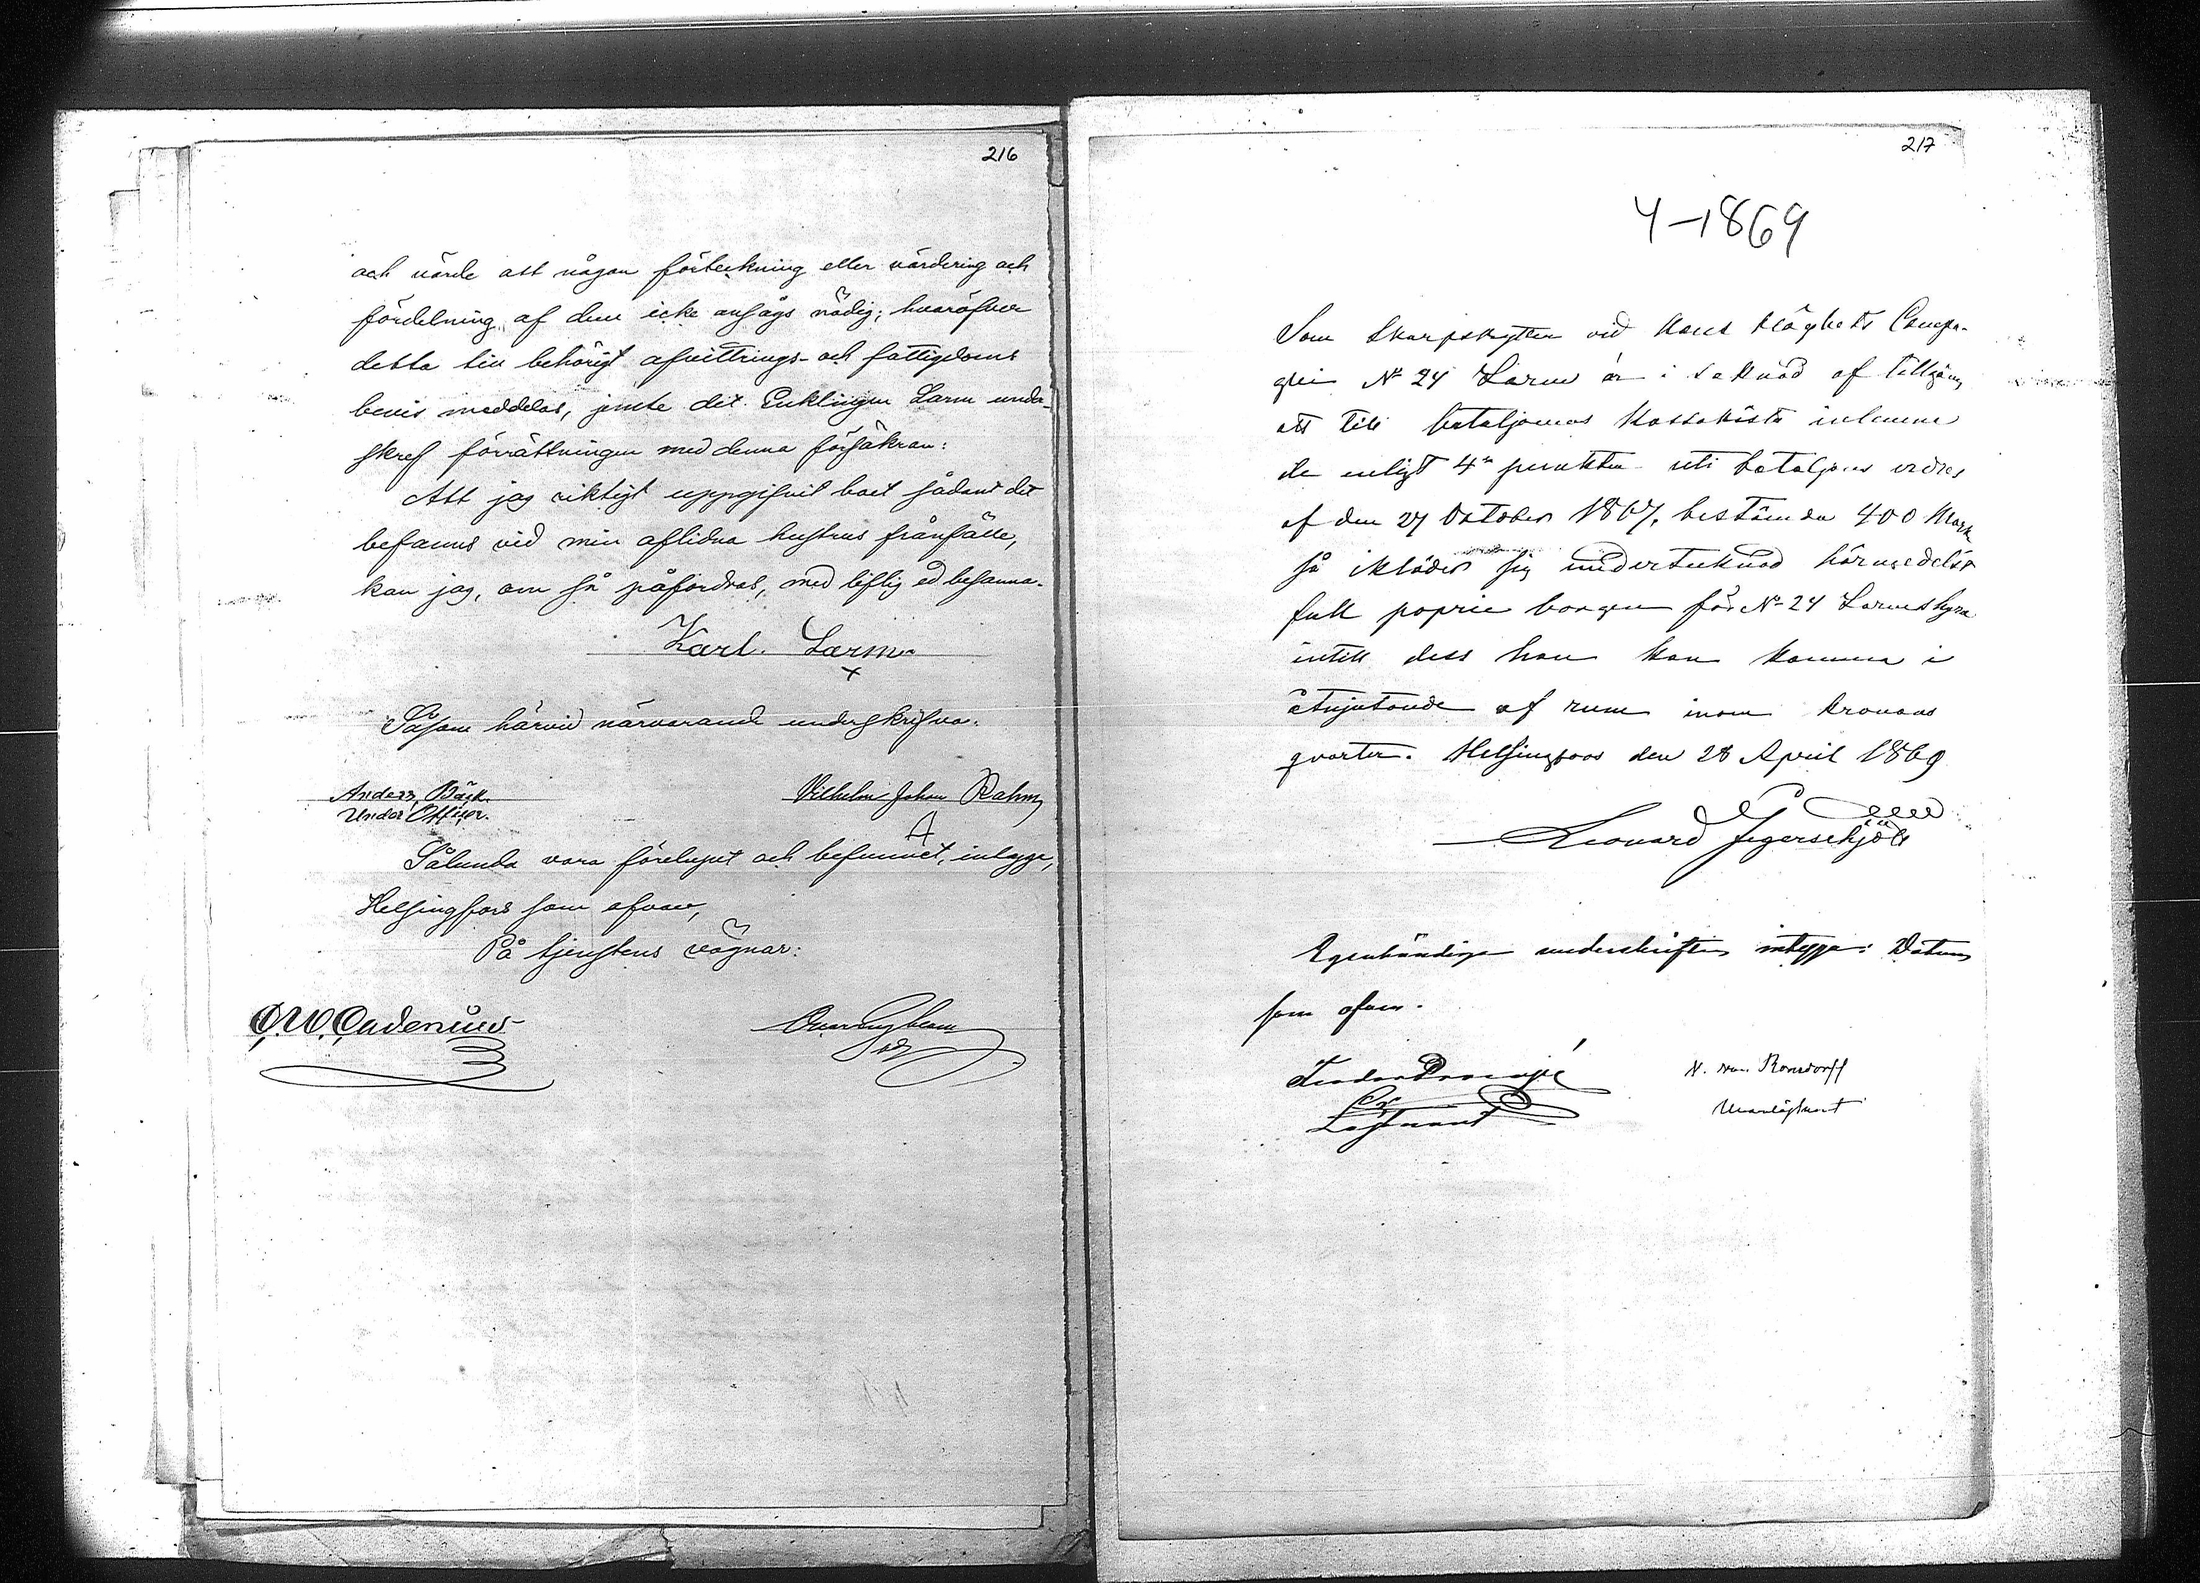 216
och värde att någon förteckning eller värdering och
fördelning af dem icke ansågs nödig; hvaröfver
detta till behörigt afvittrings- och fattigdoms
bevis meddelas, jemte det Enklingen Larm under-
skref förrättningen med denna försäkran:
Att jag riktigt uppgifvit boet sådant det
befanns vid min aflidna hustrus frånfälle,
kan jag, om så påfordras, med liflig ed besanna.
Karl Larm
Såsom härvid närvarande underskrifva.
Anders Bäck Vilhelm Johan Rahm
Under Officer.
Sålunda vara förelupet och befunnet, intyga,
Helsingfors som ofvan,
På tjenstens vägnar:
217
4-1869
Som Skarpskytten vid Hans Höghets Compa-
gni No 24 Larm är i saknad af tillgång
att till bataljonens Kassakista inlemna
de enligt 4de punkten uti bataljons ordres
af den 27 Oktober 1867, bestämda 400 Mark
så ikläder sig undertecknad härmedelst
full proprie borgen för No 24 Larms hyra
intill dess han kan komma i
åtnjutande af rum inom kronans
qvarter. Helsingfors den 28 April 1869
Leonard Jägerschjöld
Egenhändiga underskriften intyga: Datum
som ofvan.
Löjtnant